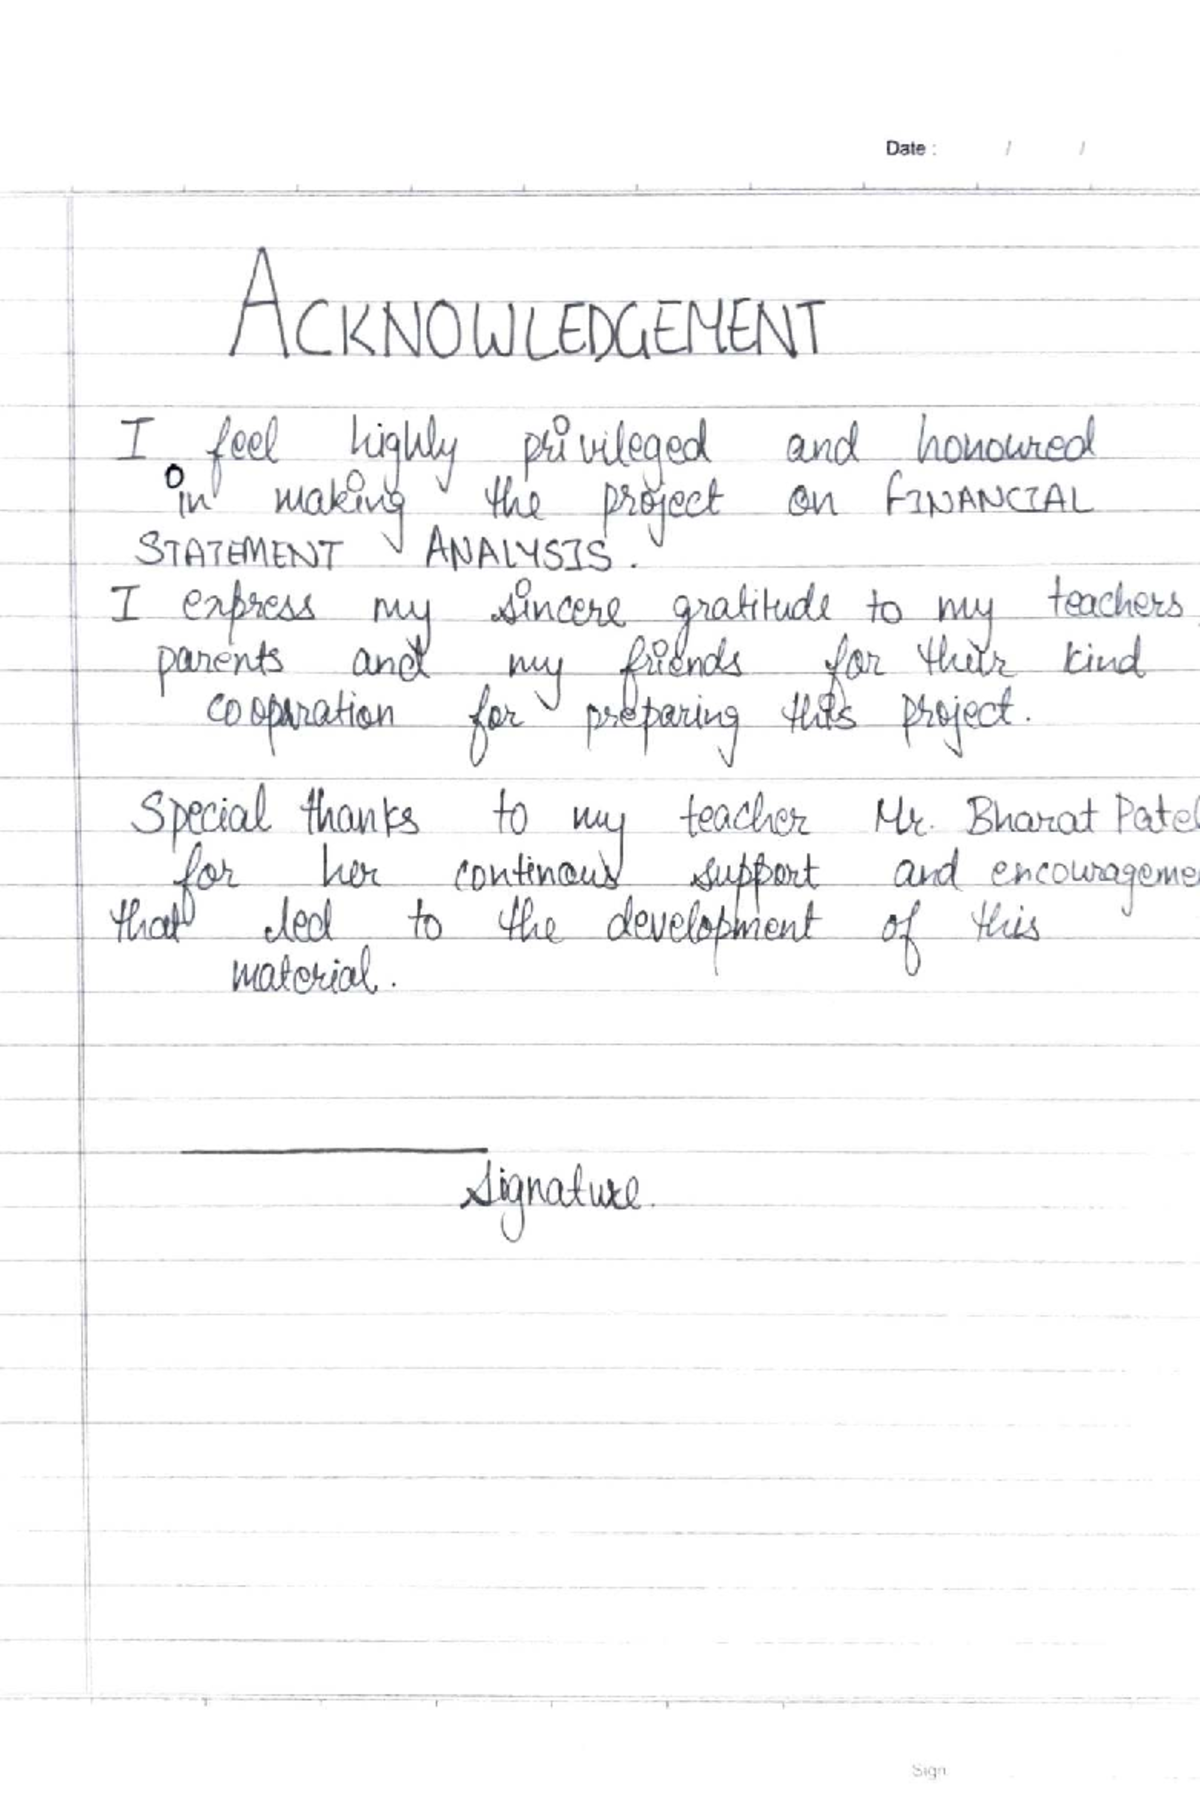 Date : / /
ACKNOWLEDGEMENT
I feel highly privileged and honoured
in making the project on FINANCIAL
STATEMENT ANALYSIS.
I express my sincere gratitude to my teachers
parents and my friends for their kind
cooparation for preparing this project.
Special thanks to my teacher Mr. Bharat Patel
for her continous support and encourageme
that led to the development of this
material.
Signature.
Sign